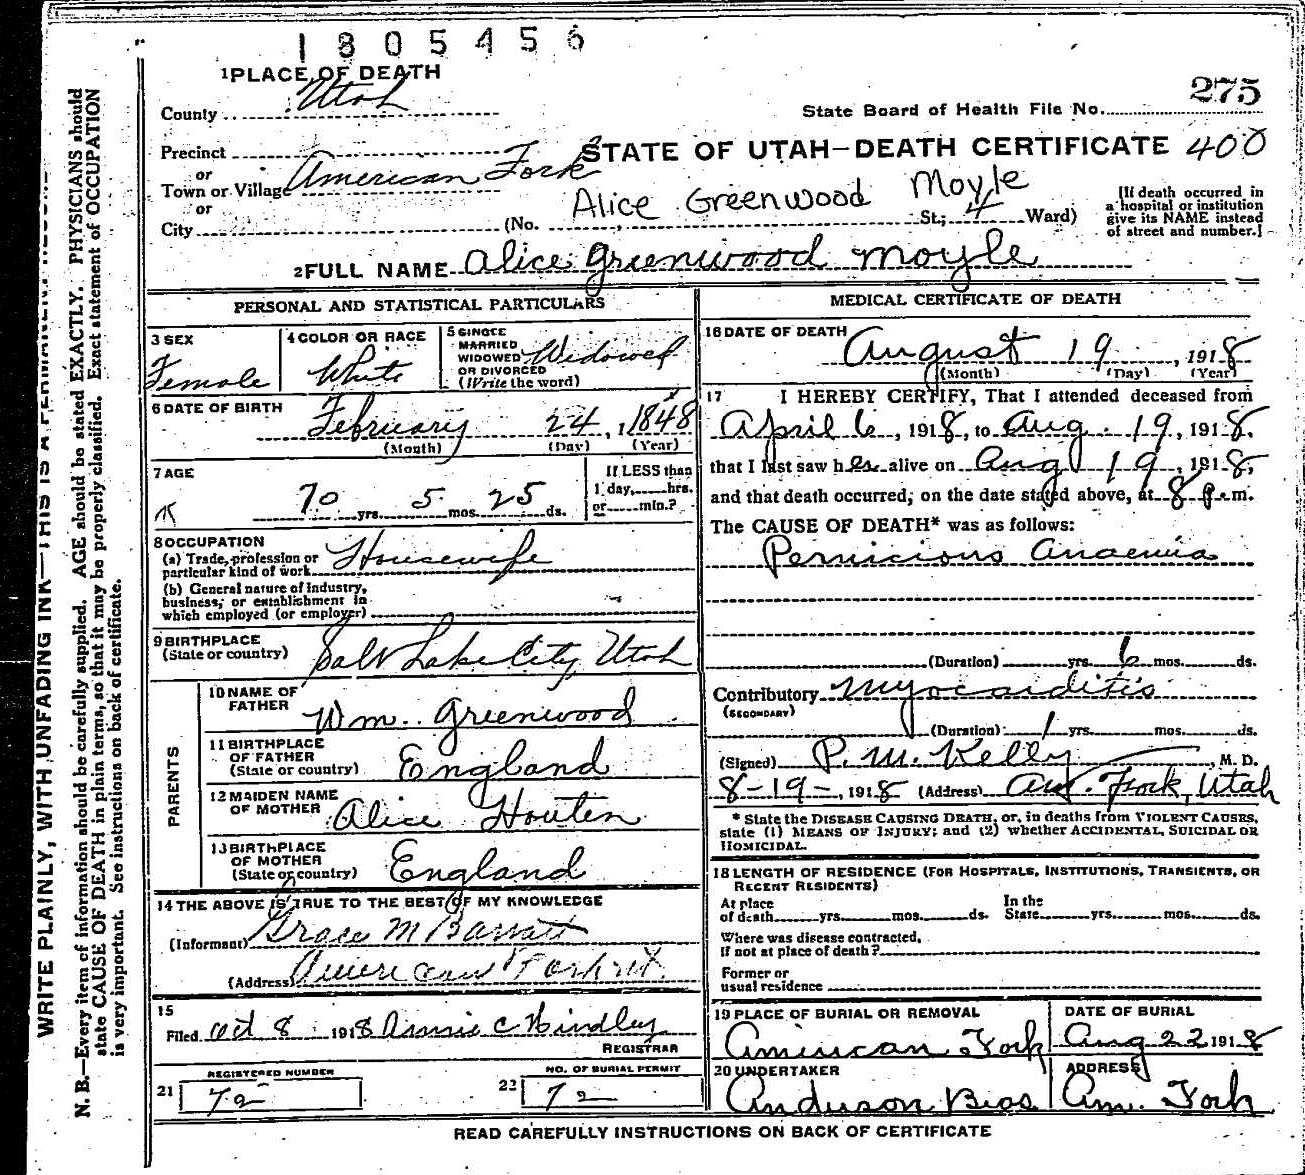 1805456
1 PLACE OF DEATH
County Utah
275
State Board of Health File No.
Precinct
or
Town or Village American Fork
or
City
STATE OF UTAH—DEATH CERTIFICATE 400
Alice Greenwood Moyle
(No. St.; 4 Ward)
[If death occurred in
a hospital or institution
give its NAME instead
of street and number.]
2 FULL NAME Alice Greenwood Moyle
PERSONAL AND STATISTICAL PARTICULARS
3 SEX
Female
4 COLOR OR RACE
White
5 SINGLE
MARRIED
WIDOWED Widowed
OR DIVORCED
(Write the word)
6 DATE OF BIRTH
February 24, 1 1848
(Month) (Day) (Year)
7 AGE
70 yrs. 5 mos. 25 ds.
If LESS than
1 day, hrs.
or min.?
8 OCCUPATION
(a) Trade, profession or
particular kind of work Housewife
(b) General nature of industry,
business, or establishment in
which employed (or employer)
9 BIRTHPLACE
(State or country) Salt Lake City, Utah
PARENTS
10 NAME OF
FATHER Wm. Greenwood
11 BIRTHPLACE
OF FATHER
(State or country) England
12 MAIDEN NAME
OF MOTHER Alice Houten
13 BIRTHPLACE
OF MOTHER
(State or country) England
14 THE ABOVE IS TRUE TO THE BEST OF MY KNOWLEDGE
(Informant) Grace M Barratt
(Address) American Fork ut.
15
Filed Oct 8 1918 Annie C Hindley
REGISTRAR
21 REGISTERED NUMBER
72
22 NO. OF BURIAL PERMIT
72
MEDICAL CERTIFICATE OF DEATH
16 DATE OF DEATH
August 19, 1918
(Month) (Day) (Year)
17 I HEREBY CERTIFY, That I attended deceased from
April 6, 1918, to Aug. 19, 1918,
that I last saw her alive on Aug 19, 1918,
and that death occurred, on the date stated above, at 8 p.m.
The CAUSE OF DEATH* was as follows:
Pernicious Anaemia
(Duration) yrs. 6 mos. ds.
Contributory Myocarditis
(SECONDARY)
(Duration) 1 yrs. mos. ds.
(Signed) P. M. Kelly, M. D.
8-19-, 1918 (Address) Am. Fork, Utah
* State the DISEASE CAUSING DEATH, or, in deaths from VIOLENT CAUSES,
state (1) MEANS OF INJURY; and (2) whether ACCIDENTAL, SUICIDAL OR
HOMICIDAL.
18 LENGTH OF RESIDENCE (FOR HOSPITALS, INSTITUTIONS, TRANSIENTS, OR
RECENT RESIDENTS)
At place
of death yrs. mos. ds.
In the
State yrs. mos. ds.
Where was disease contracted,
if not at place of death?
Former or
usual residence
19 PLACE OF BURIAL OR REMOVAL
American Fork
DATE OF BURIAL
Aug 22 1918
20 UNDERTAKER
Anderson Bros.
ADDRESS
Am. Fork
READ CAREFULLY INSTRUCTIONS ON BACK OF CERTIFICATE
WRITE PLAINLY, WITH UNFADING INK—THIS IS A PERMANENT
N. B.—Every item of information should be carefully supplied. AGE should be stated EXACTLY. PHYSICIANS should
state CAUSE OF DEATH in plain terms, so that it may be properly classified. Exact statement of OCCUPATION
is very important. See instructions on back of certificate.